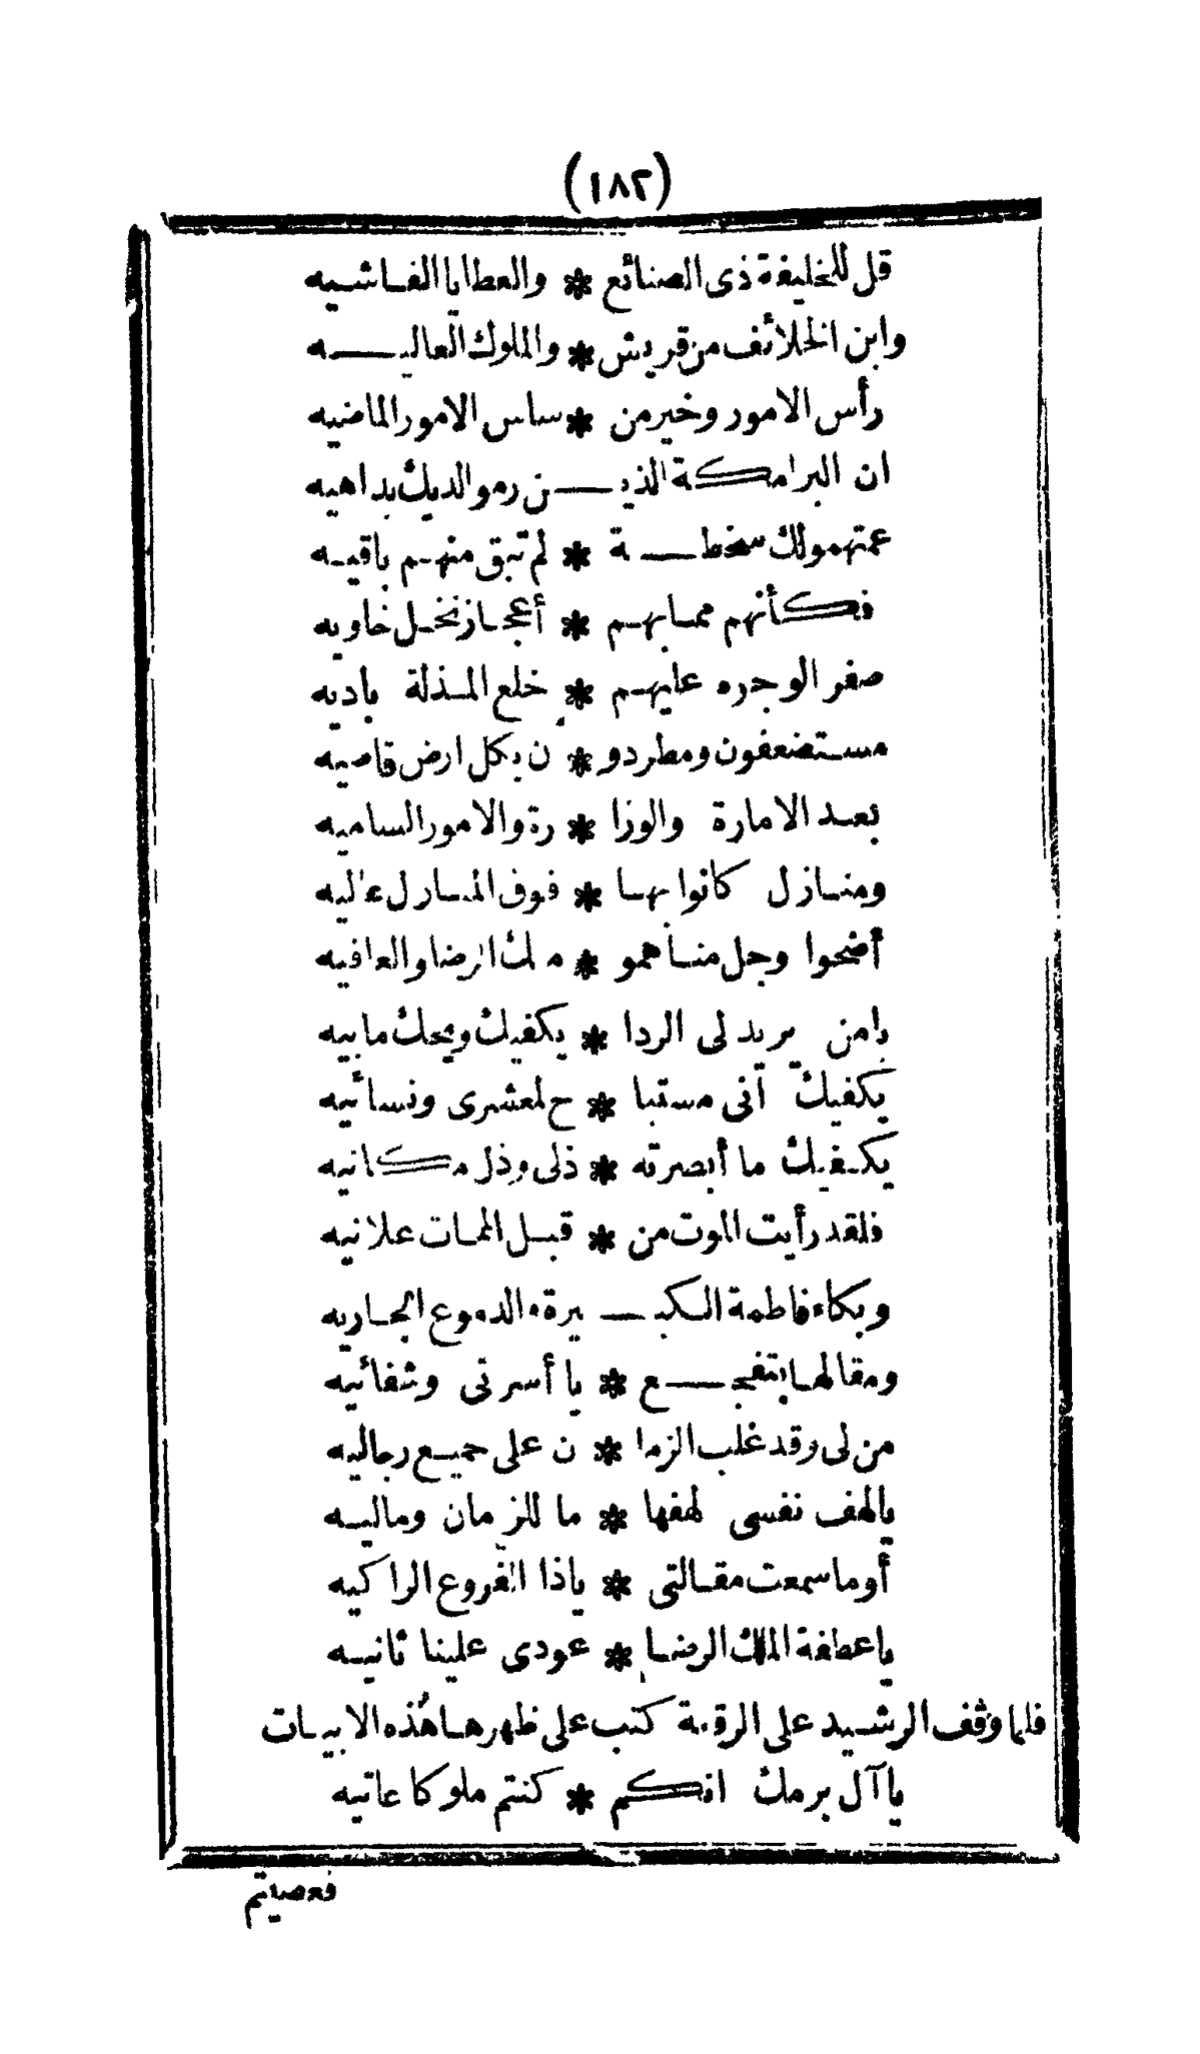 (١٨٢)
قل للخليفة ذى الصنائع * والعطايا الفاشيه
وابن الخلائف من قريش * والملوك العاليه
رأس الامور وخير من * ساس الامور الماضيه
ان البرامكة الذين رموا لديك بداهيه
عمتهمولك سخطة * لم تبق منهم باقيه
فكأنهم مما بهم * أعجاز نخل خاويه
صفر الوجوه عليهم * خلع المذلة باديه
مستضعفون ومطردو * ن بكل ارض قاصيه
بعد الامارة والوزا * رة والامور الساميه
ومنازل كانوا بها * فوق المنازل عاليه
أضحوا وجل مناهمو * منك الرضا والعافيه
يامن يريد لى الردا * يكفيك ويحك مابيه
يكفيك آنى مستبا * ح لمعشرى ونسائيه
يكفيك ما أبصرته * ذلى وذل مكانيه
فلقد رأيت الموت من * قبل الممات علانيه
وبكاء فاطمة الكبيرة والدموع الجاريه
ومقالها بتفجع * يا أسرتى وشفائيه
من لى وقد غلب الزما * ن على جميع رجاليه
يالهف نفسى لهفها * ما للزمان وماليه
أوما سمعت مقالتى * ياذا الفروع الزاكيه
ياعطفة الملك الرضا * عودى علينا ثانيه
فلما وقف الرشيد على الرقعة كتب على ظهرها هذه الابيات
يا آل برمك انكم * كنتم ملوكا عاتيه
فعصيتم